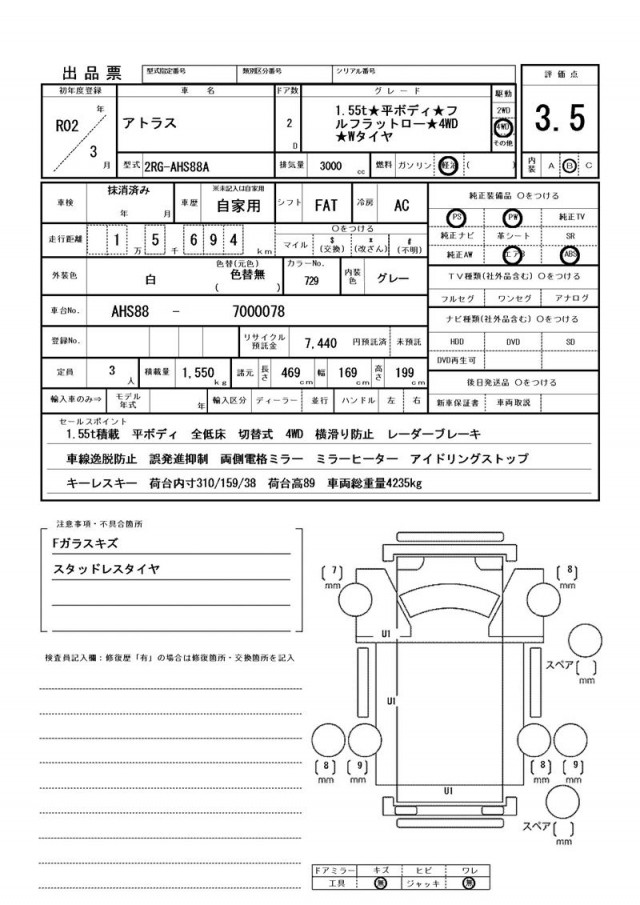 出品票
型式指定番号 類別区分番号 シリアル番号
評価点
3.5
初年度登録 車名 ドア数 グレード 駆動
R02 年 / 3 月
アトラス
2 D
1.55t★平ボディ★フ
ルフラットロー★4WD
★Wタイヤ
2WD
4WD
その他
型式 2RG-AHS88A 排気量 3000 cc 燃料 ガソリン 軽油 ( )
内装 A B C
車検 抹消済み 年 月
車歴 ※未記入は自家用 自家用
シフト FAT 冷房 AC
走行距離 1 万 5 千 6 9 4 km
〇をつける
マイル $ (交換) * (改ざん) # (不明)
外装色 白 色替(元色) 色替無 ( )
カラーNo. 729 内装色 グレー
車台No. AHS88 - 7000078
登録No. リサイクル預託金 7,440 円預託済 未預託
定員 3 人 積載量 1,550 kg 諸元 長さ 469 cm 幅 169 cm 高さ 199 cm
輸入車のみ⇒ モデル年式 年 輸入区分 ディーラー 並行 ハンドル 左 右
純正装備品 〇をつける
PS PW 純正TV
純正ナビ 革シート SR
純正AW エアB ABS
TV種類(社外品含む) 〇をつける
フルセグ ワンセグ アナログ
ナビ種類(社外品含む) 〇をつける
HDD DVD SD
DVD再生可
後日発送品 〇をつける
新車保証書 車両取説
セールスポイント
1.55t積載 平ボディ 全低床 切替式 4WD 横滑り防止 レーダーブレーキ
車線逸脱防止 誤発進抑制 両側電格ミラー ミラーヒーター アイドリングストップ
キーレスキー 荷台内寸310/159/38 荷台高89 車両総重量4235kg
注意事項・不具合箇所
Fガラスキズ
スタッドレスタイヤ
検査員記入欄：修復歴「有」の場合は修復箇所・交換箇所を記入
(7) mm
(8) mm
U1
スペア ( ) mm
U1
(8) mm
(9) mm
(8) mm
(9) mm
U1
スペア ( ) mm
ドアミラー キズ ヒビ ワレ
工具 無 ジャッキ 無